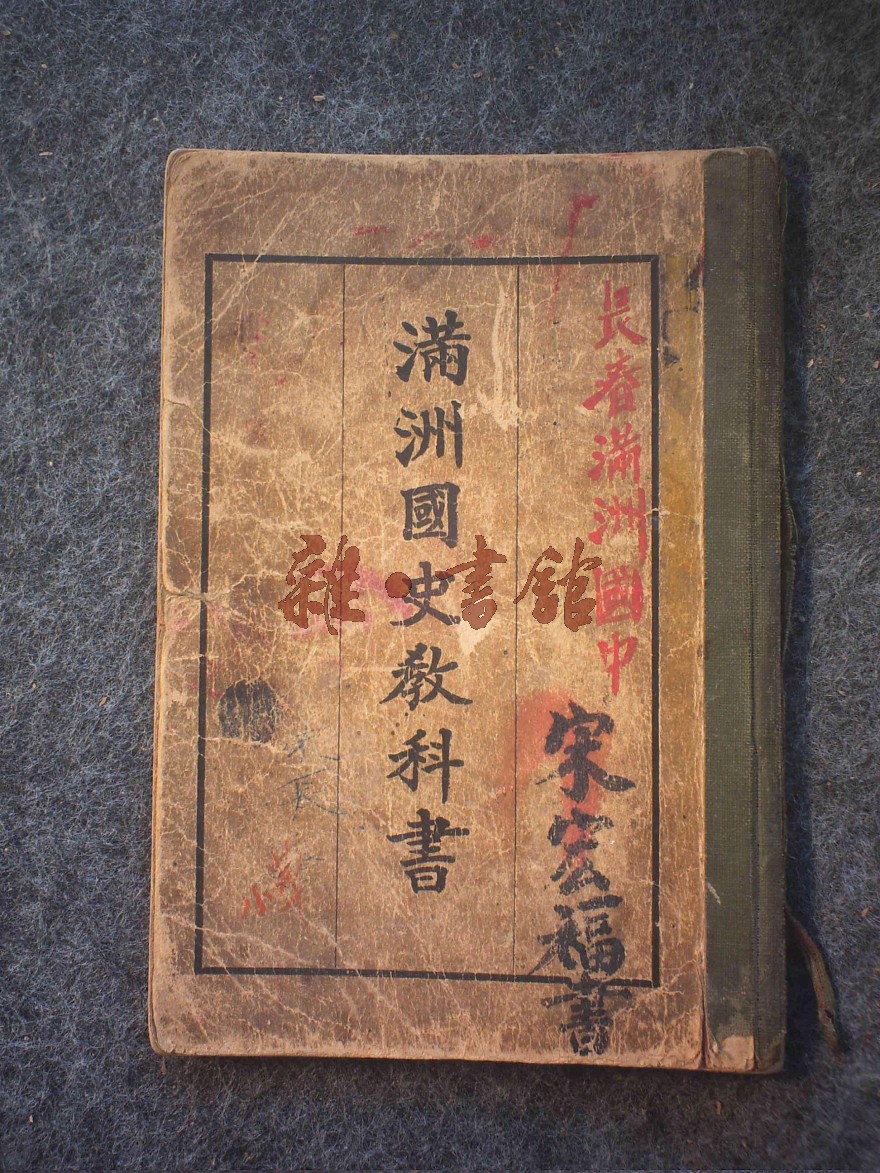 長春滿洲國中
宋宏福書
滿洲國史教科書
雜·書館